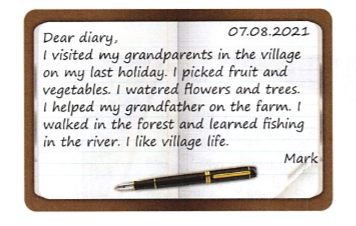 Dear diary, 07.08.2021
I visited my grandparents in the village
on my last holiday. I picked fruit and
vegetables. I watered flowers and trees.
I helped my grandfather on the farm. I
walked in the forest and learned fishing
in the river. I like village life.
Mark